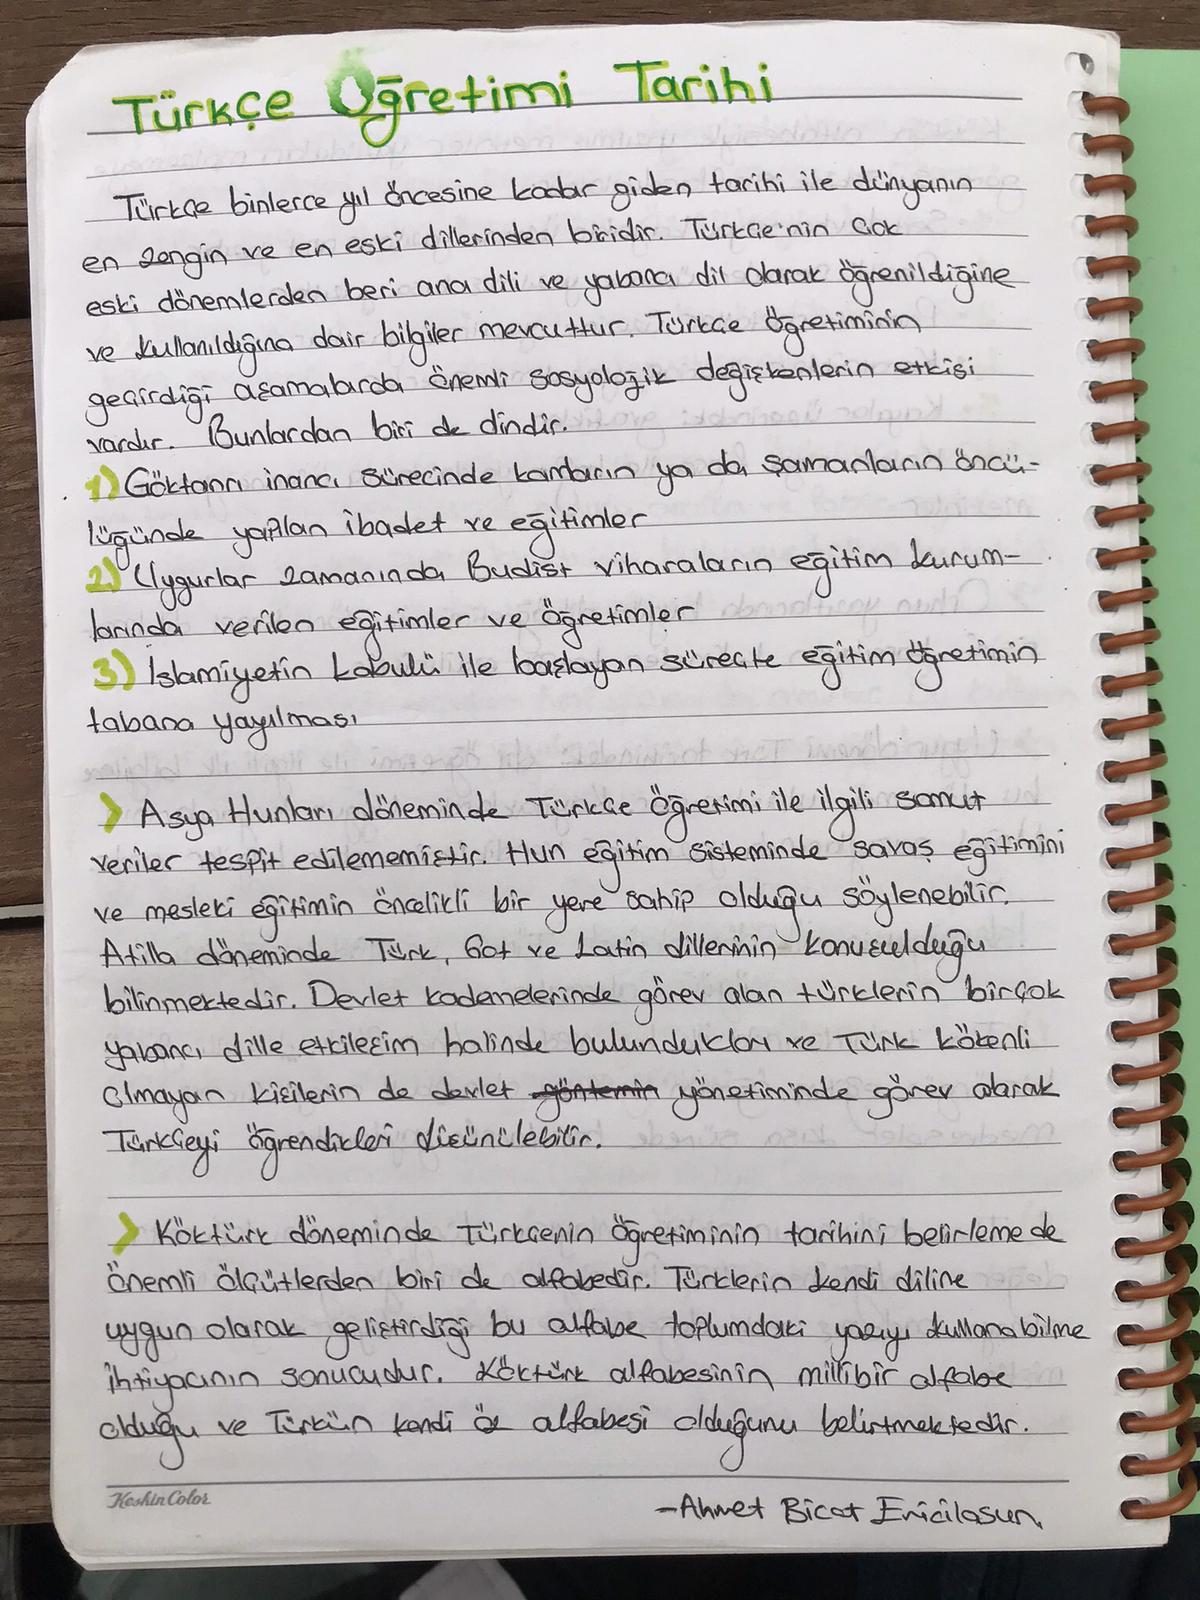 Türkçe Öğretimi Tarihi
Türkçe binlerce yıl öncesine kadar giden tarihi ile dünyanın
en zengin ve en eski dillerinden biridir. Türkçe'nin çok
eski dönemlerden beri ana dili ve yabancı dil olarak öğrenildiğine
ve kullanıldığına dair bilgiler mevcuttur. Türkçe Öğretiminin
geçirdiği aşamalarda önemli sosyolojik değişkenlerin etkisi
vardır. Bunlardan biri de dindir.
1) Göktanrı inancı sürecinde kamların ya da şamanların öncü-
lüğünde yapılan ibadet ve eğitimler
2) Uygurlar zamanında Budist viharaların eğitim kurum-
larında verilen eğitimler ve öğretimler
3) İslamiyetin kabulü ile başlayan süreçte eğitim öğretimin
tabana yayılması
> Asya Hunları döneminde Türkçe Öğretimi ile ilgili somut
veriler tespit edilememiştir. Hun eğitim sisteminde savaş eğitimini
ve mesleki eğitimin öncelikli bir yere sahip olduğu söylenebilir.
Atilla döneminde Türk, Got ve Latin dillerinin konuşulduğu
bilinmektedir. Devlet kademelerinde görev alan türklerin birçok
yabancı dille etkileşim halinde bulundukları ve Türk kökenli
olmayan kişilerin de devlet yönetiminde görev alarak
Türkçeyi öğrendikleri düşünülebilir.
> Köktürk döneminde Türkçenin Öğretiminin tarihini belirleme de
önemli ölçütlerden biri de alfabedir. Türklerin kendi diline
uygun olarak geliştirdiği bu alfabe toplumdaki yazıyı kullanabilme
ihtiyacının sonucudur. Köktürk alfabesinin milli bir alfabe
olduğu ve Türkün kendi öz alfabesi olduğunu belirtmektedir.
KeskinColor
-Ahmet Bicat Ercilasun